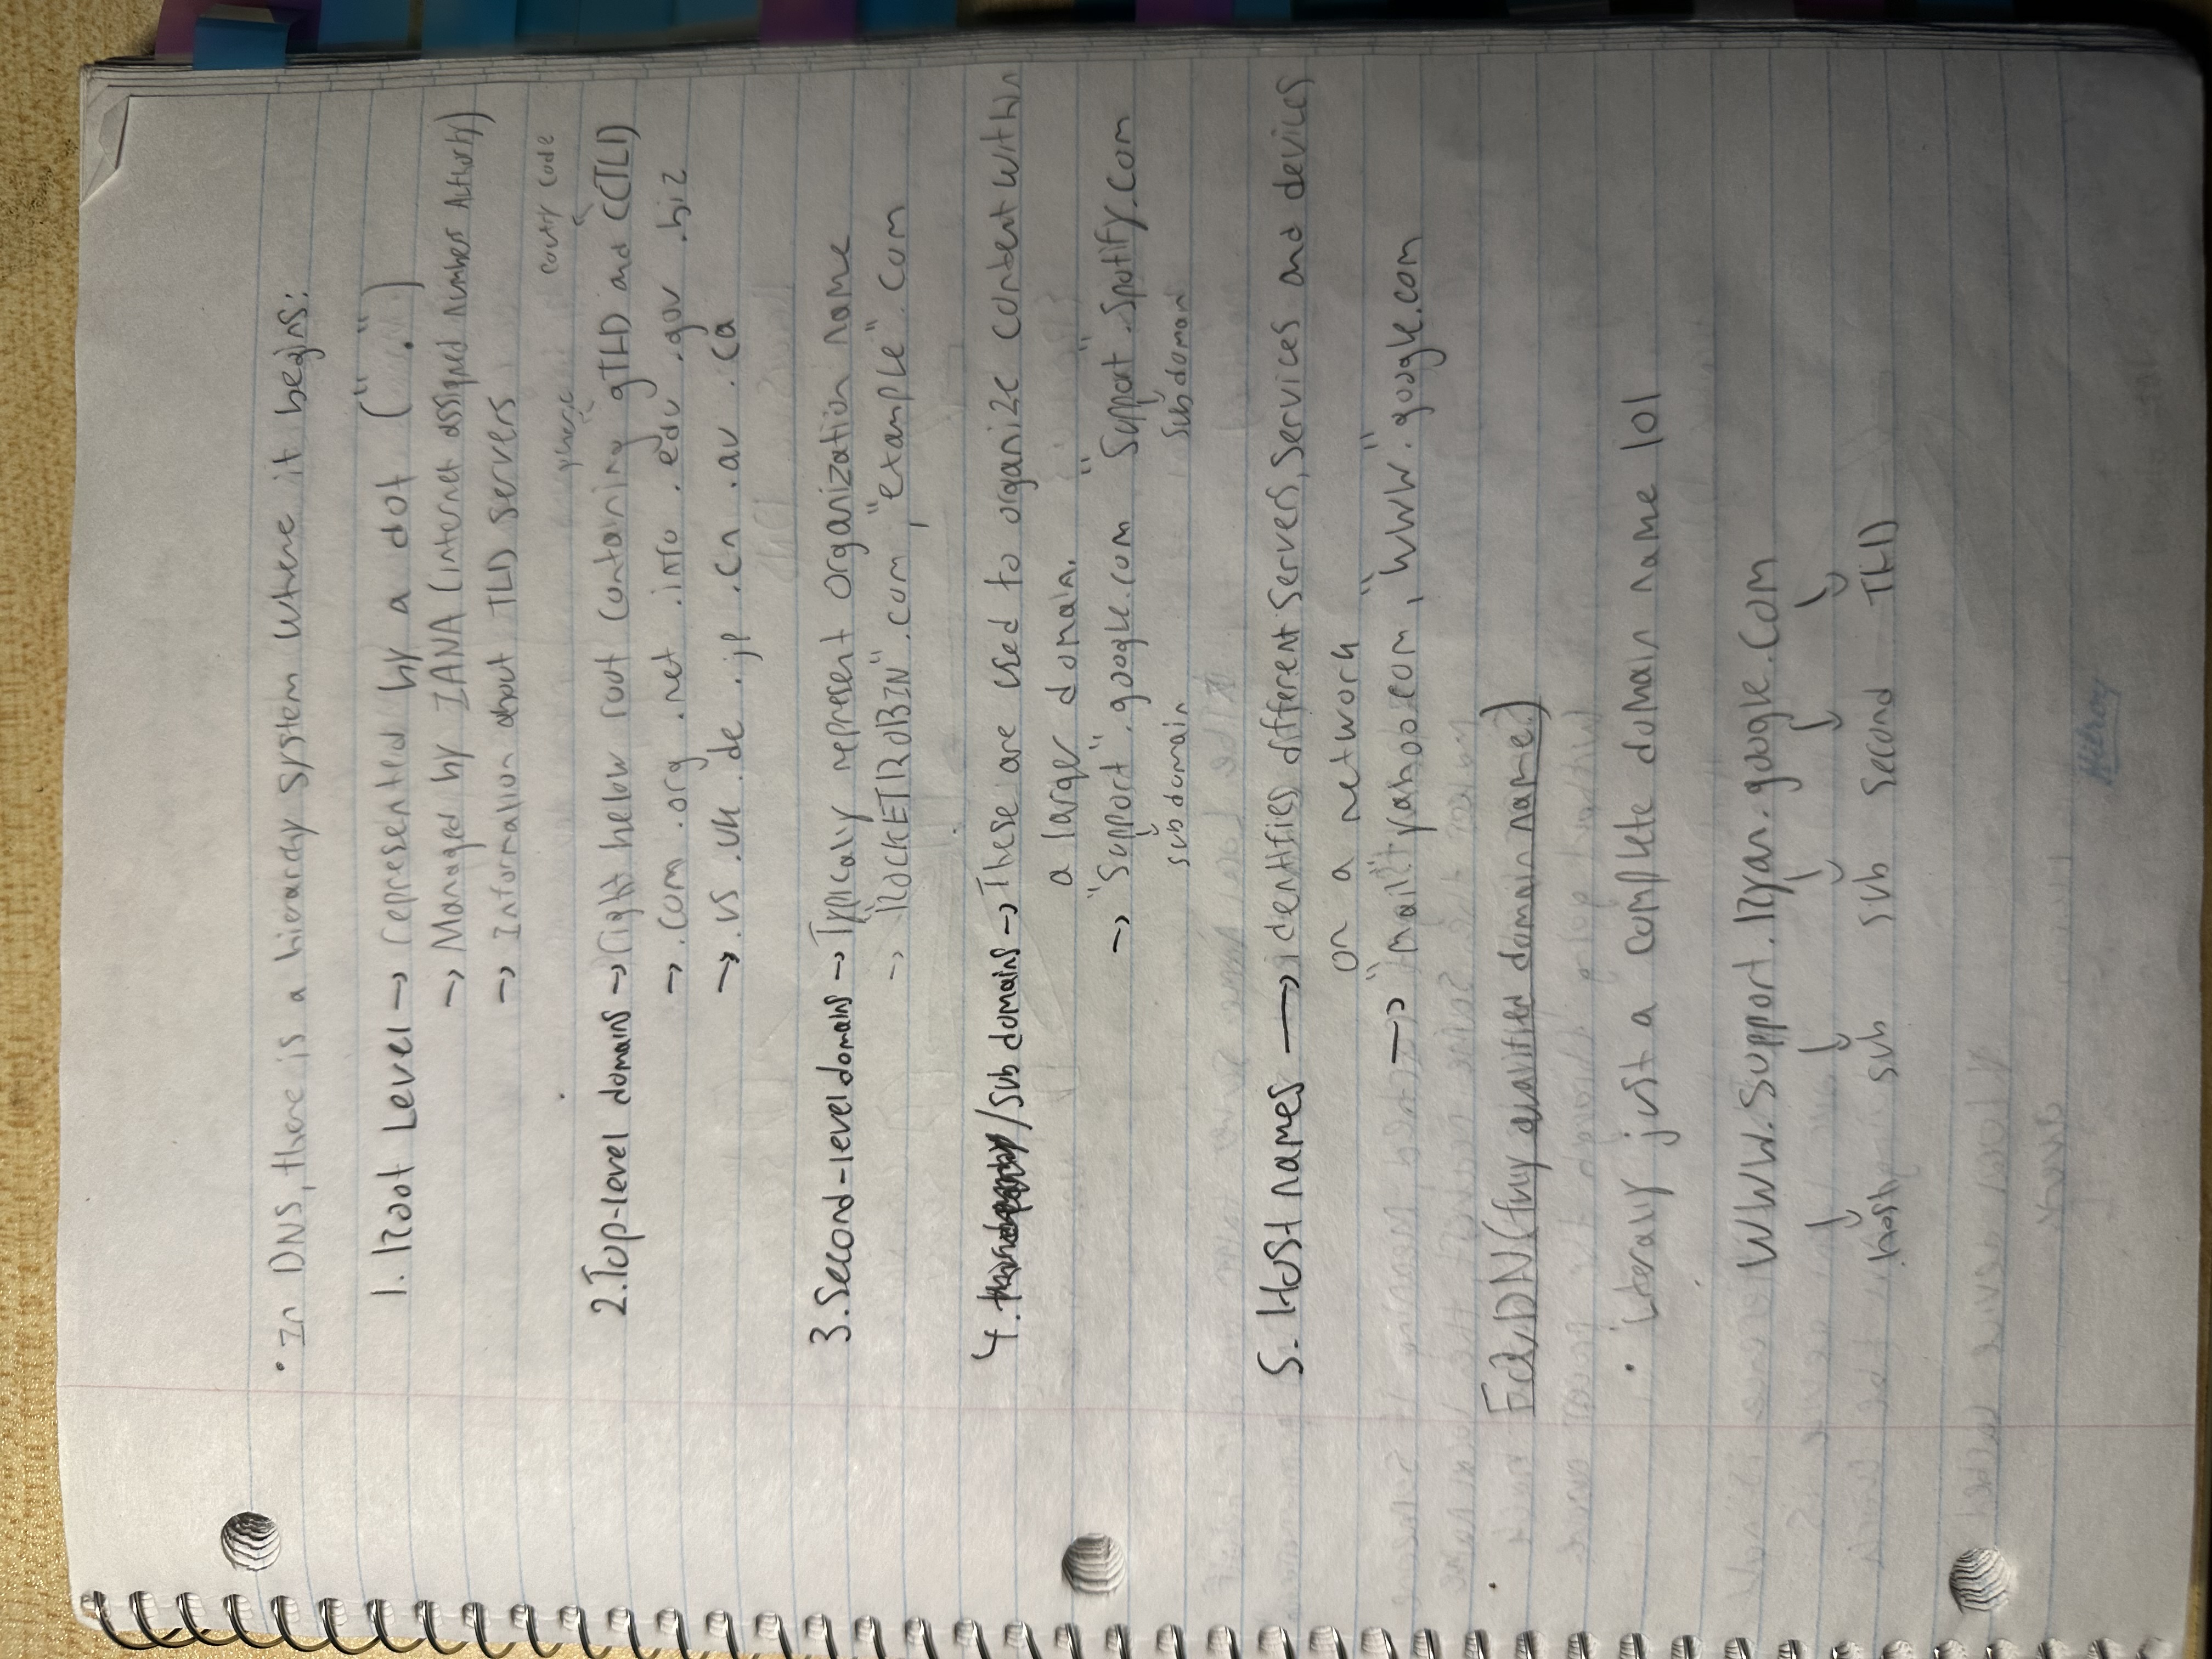 • In DNS, there is a hierarchy system where it begins:
1. Root Level → represented by a dot (".")
→ Managed by IANA (internet assigned numbers Authority)
→ Information about TLD servers
country code
2. Top-level domains → right below root containing gTLD and ccTLD
→ .com .org .net .info .edu .gov .biz
→ .us .uk .de .jp .cn .au .ca
3. Second-level domains → Typically represent organization name
→ "ROCKETROBIN".com, "example".com
4. /Sub domains → These are used to organize content within
a larger domain.
→ "Support".google.com "Support".Spotify.com
subdomain subdomain
5. Host names → identifies different servers, services and devices
on a network
→ "mail".yahoo.com, "www".google.com
FQDN (fully qualified domain name)
• Literally just a complete domain name lol
WWW.Support.Ryan.google.com
Host sub sub second TLD
Hilroy